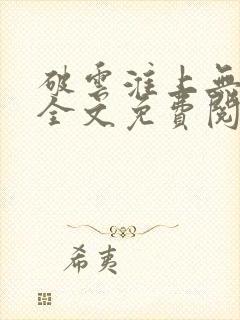 破雲淮上無
全文免費閱
希夷